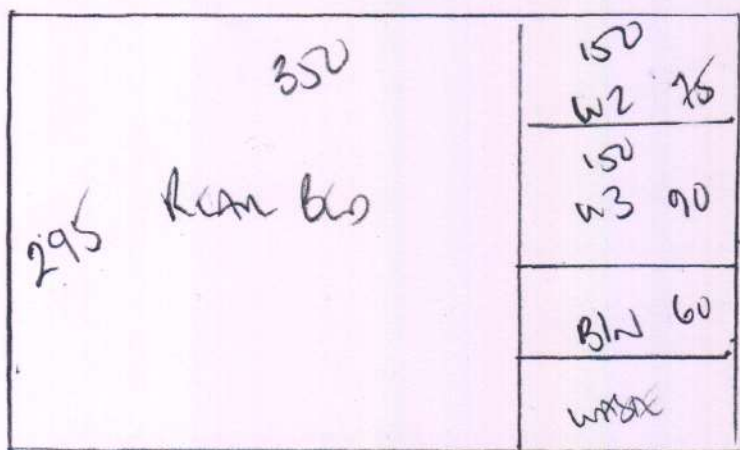 350
295
REAR BED
150
W2 75
150
W3 90
BIN 60
WASTE